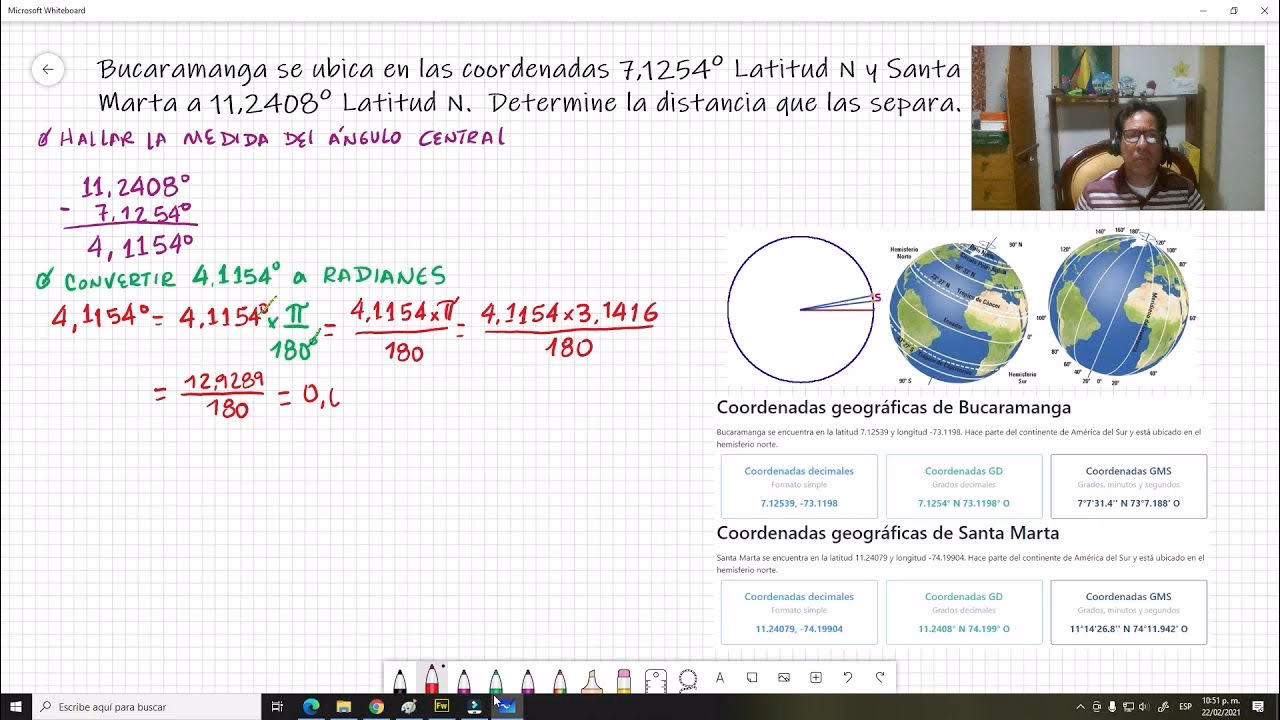 Microsoft Whiteboard
Bucaramanga se ubica en las coordenadas 7,1254° Latitud N y Santa
Marta a 11,2408° Latitud N. Determine la distancia que las separa.
HALLAR LA MEDIDA DEL ÁNGULO CENTRAL
11,2408°
- 7,1254°
4,1154°
CONVERTIR 4,1154° a RADIANES
4,1154° = 4,1154° x π/180° = 4,1154 x π/180 = 4,1154 x 3,1416/180
= 12,9289/180 = 0,0
S
Hemisferio Norte
90° N
Trópico de Cáncer
Ecuador
0°
90° S
Hemisferio Sur
140° 160° 180° 160° 140° 120° 100° 80°
120°
100°
80°
60°
40° 20° 0° 20° 40° 60°
Coordenadas geográficas de Bucaramanga
Bucaramanga se encuentra en la latitud 7.12539 y longitud -73.1198. Hace parte del continente de América del Sur y está ubicado en el
hemisferio norte.
Coordenadas decimales
Formato simple
7.12539, -73.1198
Coordenadas GD
Grados decimales
7.1254° N 73.1198° O
Coordenadas GMS
Grados, minutos y segundos
7°7'31.4'' N 73°7.188' O
Coordenadas geográficas de Santa Marta
Santa Marta se encuentra en la latitud 11.24079 y longitud -74.19904. Hace parte del continente de América del Sur y está ubicado en el
hemisferio norte.
Coordenadas decimales
Formato simple
11.24079, -74.19904
Coordenadas GD
Grados decimales
11.2408° N 74.199° O
Coordenadas GMS
Grados, minutos y segundos
11°14'26.8'' N 74°11.942' O
A
Escribe aquí para buscar
Fw
ESP
10:51 p. m.
22/02/2021